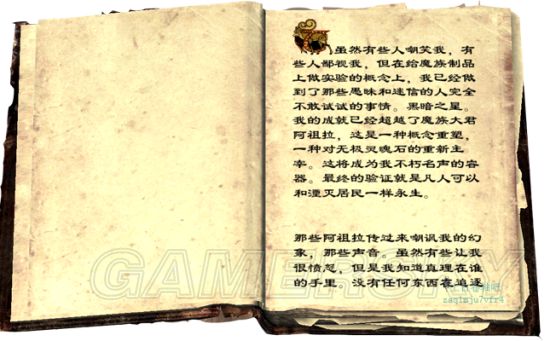 虽然有些人嘲笑我，有
些人鄙视我，但在给魔族制品
上做实验的概念上，我已经做
到了那些愚昧和迷信的人完全
不敢试试的事情。黑暗之星。
我的成就已经超越了魔族大君
阿祖拉，这是一种概念重塑，
一种对无极灵魂石的重新主
宰。这将成为我不朽名声的容
器。最终的验证就是凡人可以
和湮灭居民一样永生。
那些阿祖拉传过来嘲讽我的幻
象，那些声音。虽然有些让我
很愤怒，但是我知道真理在谁
的手里。没有任何东西在追逐
GAMERSKY
zaqlmju7vfr4